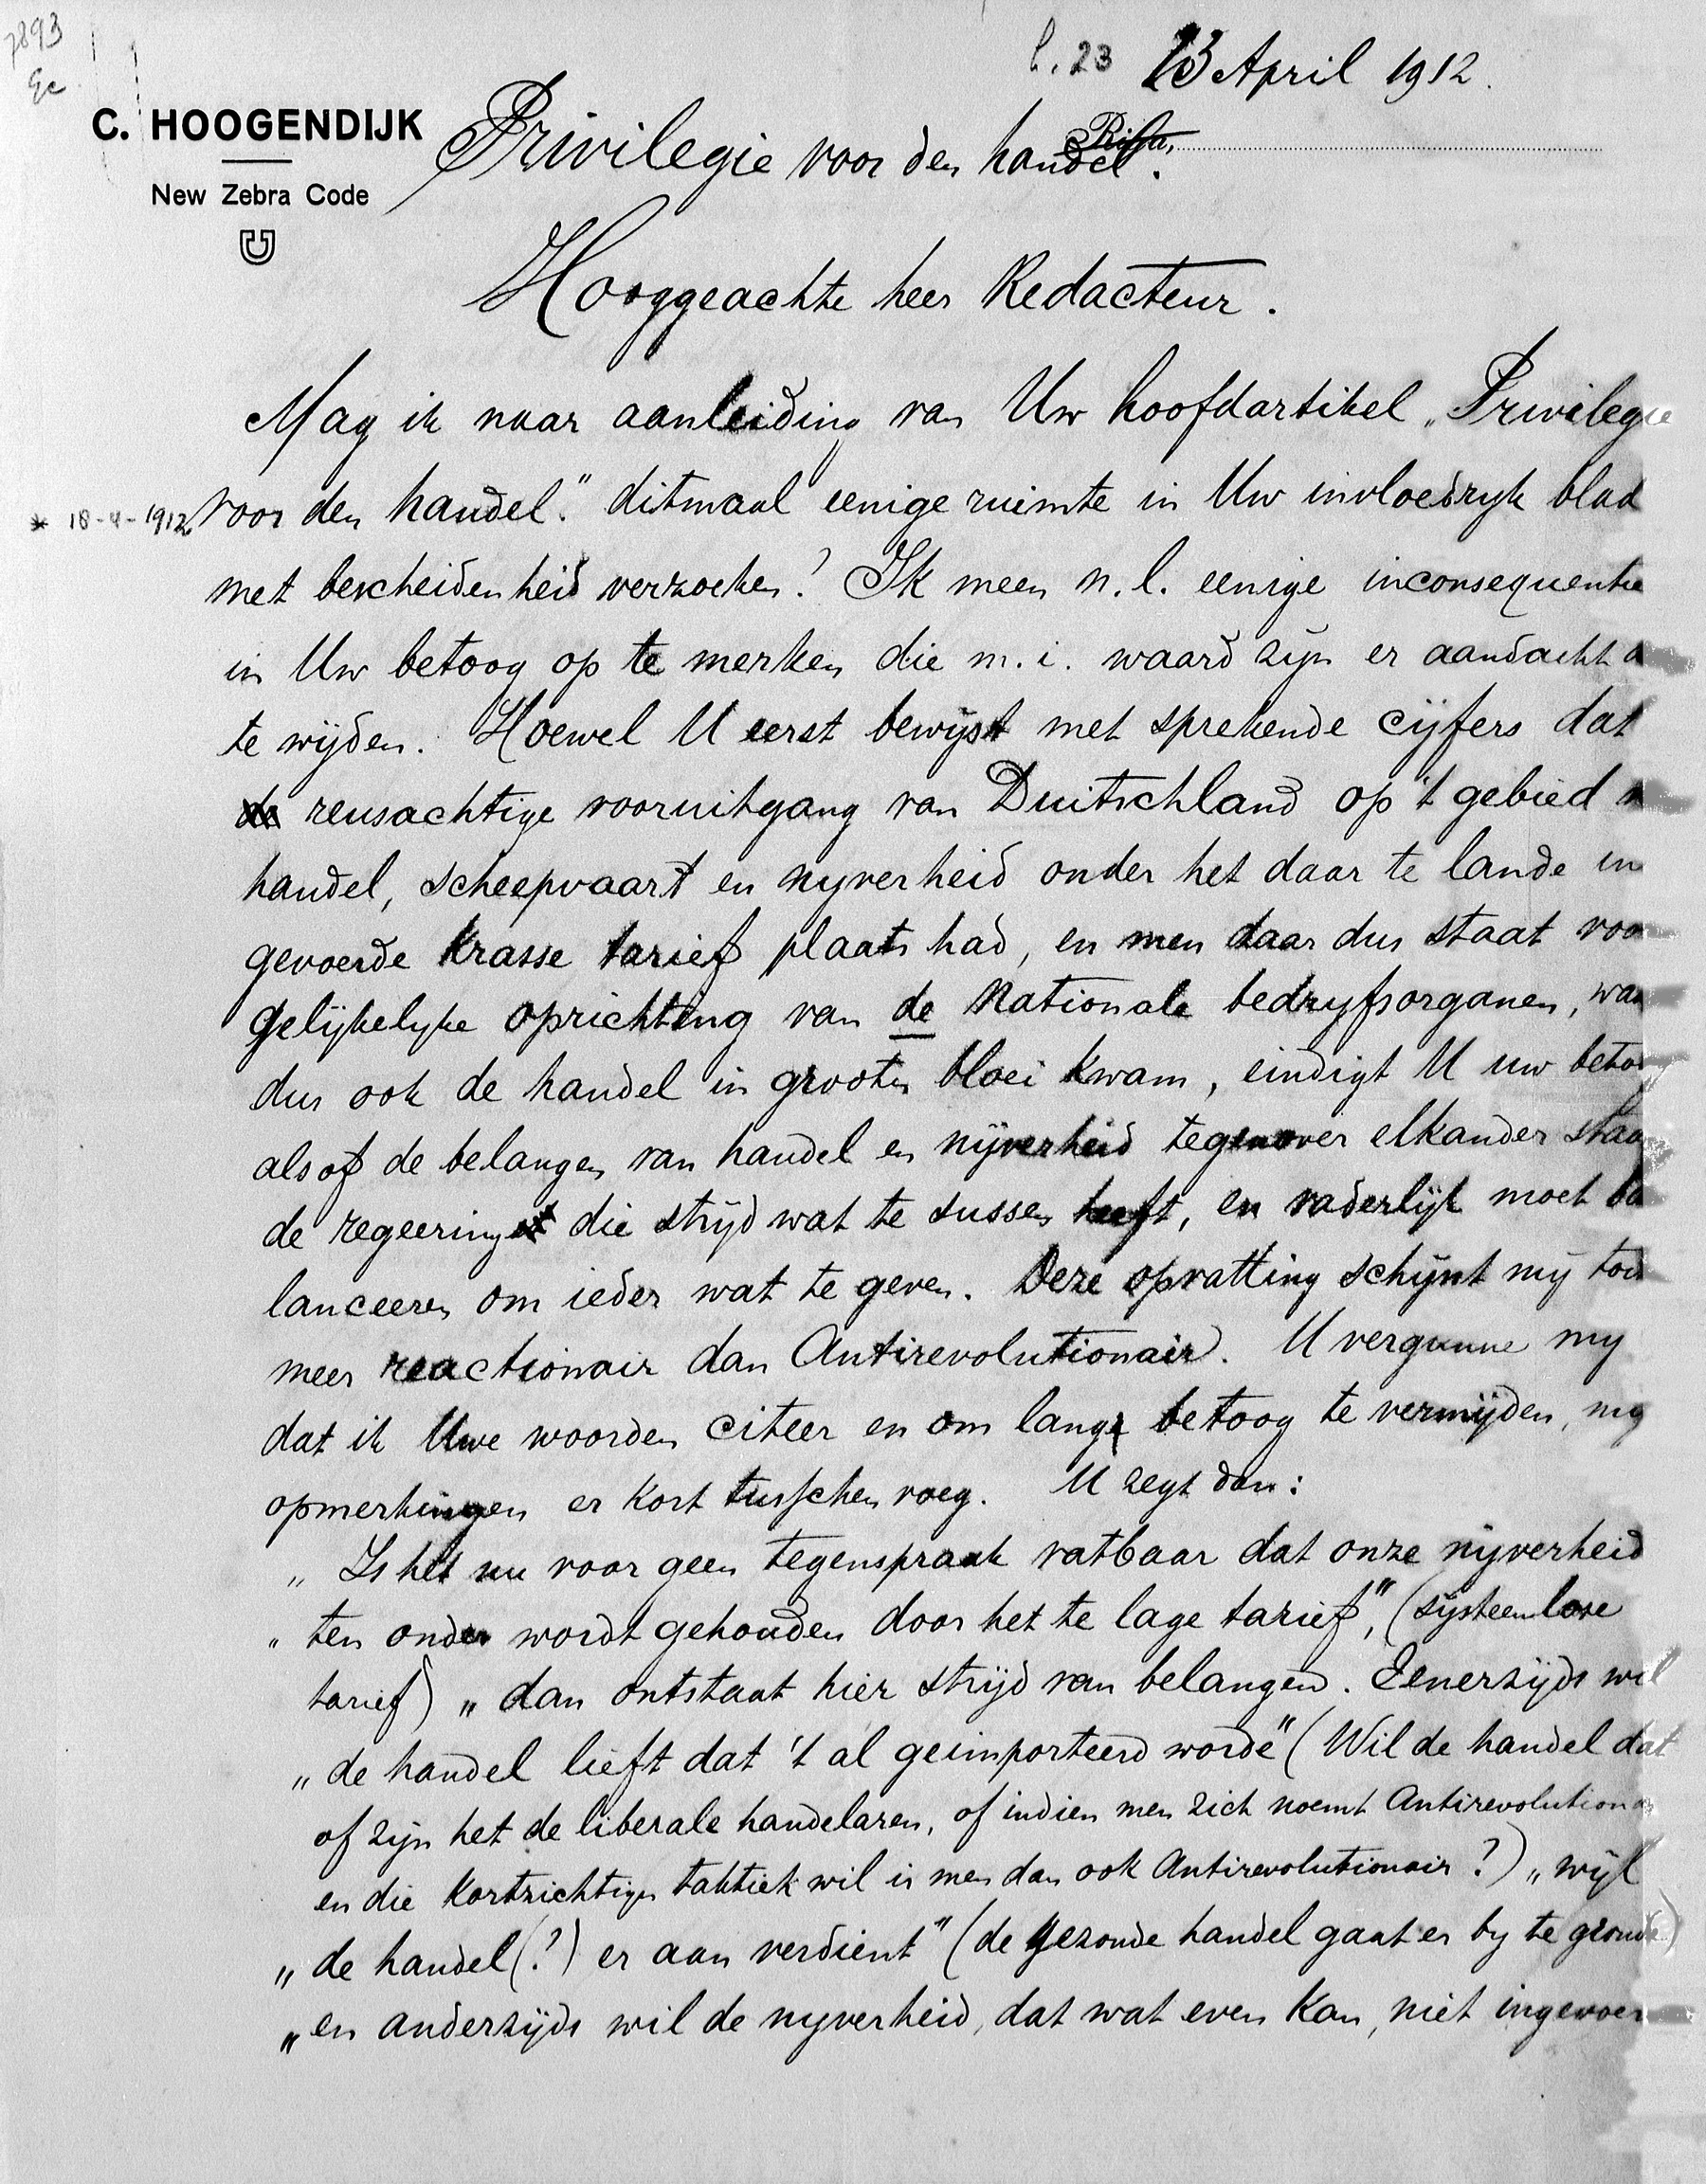 7893
Gc
b. 23 13 April 1912.
C. HOOGENDIJK
New Zebra Code
Privilegie voor den handel.
Hooggeachte heer Redacteur.
Mag ik naar aanleiding van Uw hoofdartikel „Privilegie
* 18-4-1912
voor den handel." ditmaal eenige ruimte in Uw invloedryk blad
met bescheidenheid verzoeken? Ik meen n.l. eenige inconsequentie
in Uw betoog op te merken die m.i. waard zijn er aandacht a
te wijden. Hoewel U eerst bewijst met sprekende cijfers dat
de reusachtige vooruitgang van Duitschland op 't gebied v
handel, scheepvaart en nyverheid onder het daar te lande in
gevoerde krasse tarief plaats had, en men daar dus staat voo
gelijkelyke oprichting van de Nationale bedryfsorganen, waa
dus ook de handel in grooten bloei kwam, eindigt U uw betoo
alsof de belangen van handel en nijverheid tegenover elkander staa
de regeering die strijd wat te sussen heeft, en vaderlijk moet ba
lanceeren om ieder wat te geven. Deze opvatting schijnt mij toch
meer reactionair dan Antirevolutionair. U vergunne my
dat ik Uwe woorden citeer en om lang betoog te vermijden, myn
opmerkingen er kort tusschen voeg. U zegt dan:
„ Is het nu voor geen tegenspraak vatbaar dat onze nijverheid
„ ten onder wordt gehouden door het te lage tarief", (systeemloze
tarief) „ dan ontstaat hier strijd van belangen. Eenerzijds wil
„ de handel liefst dat 't al geimporteerd worde" (Wil de handel dat
of zijn het de liberale handelaren, of indien men zich noemt Antirevolutiona
en die kortzichtige taktiek wil is men dan ook Antirevolutionair?) „ wijl
„ de handel (?) er aan verdient" (de gezonde handel gaat er by te gronde)
„ en anderzijds wil de nyverheid, dat wat even kan, niet ingevoer